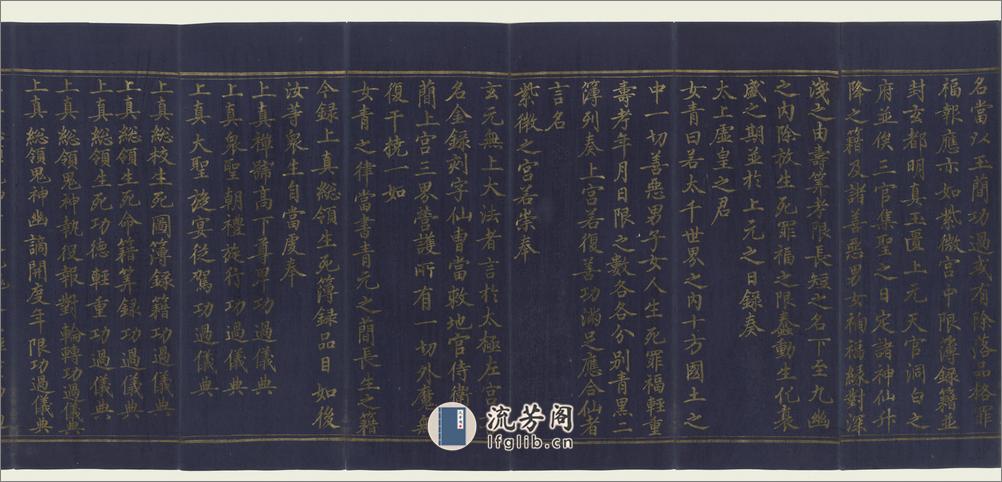 名當以玉簡功過或有除落品格罪
福報應亦如紫微宮中限簿録籍並
封玄都明真玉匱上元天官洞白之
府並俟三官集聖之日定諸神仙升
降之籍及諸善惡男女禍福緣對深
淺之由壽筭考限長短之名下至九幽
之内除放生死罪福之限蠢動生化衰
盛之期並於上元之日録奏
太上虛皇之君
女青曰若太千世界之内十方國土之
中一切善惡男子女人生死罪福輕重
壽考年月日限之數各各分別青黑二
簿列奏上宮若復善功滿足應合仙者
言名
紫微之宮若崇奉
玄元無上大法者言於太極左宮
名金録刻字仙曹當敕地官侍衛
簡上宮三界營護所有一切外魔無
復干撓一如
女青之律當書青元之簡長生之籍
今録上真総領生死簿録品目如後
汝等衆生自當虔奉
上真禪號高下尊卑功過儀典
上真衆聖朝禮旋行功過儀典
上真大聖遊宴從駕功過儀典
上真総校生死圖簿録籍功過儀典
上真総領生死命籍筭録功過儀典
上真総領生死功德輕重功過儀典
上真総領鬼神執役報對輪轉功過儀典
上真総領鬼神幽謫開度年限功過儀典
流芳阁
lfglib.cn